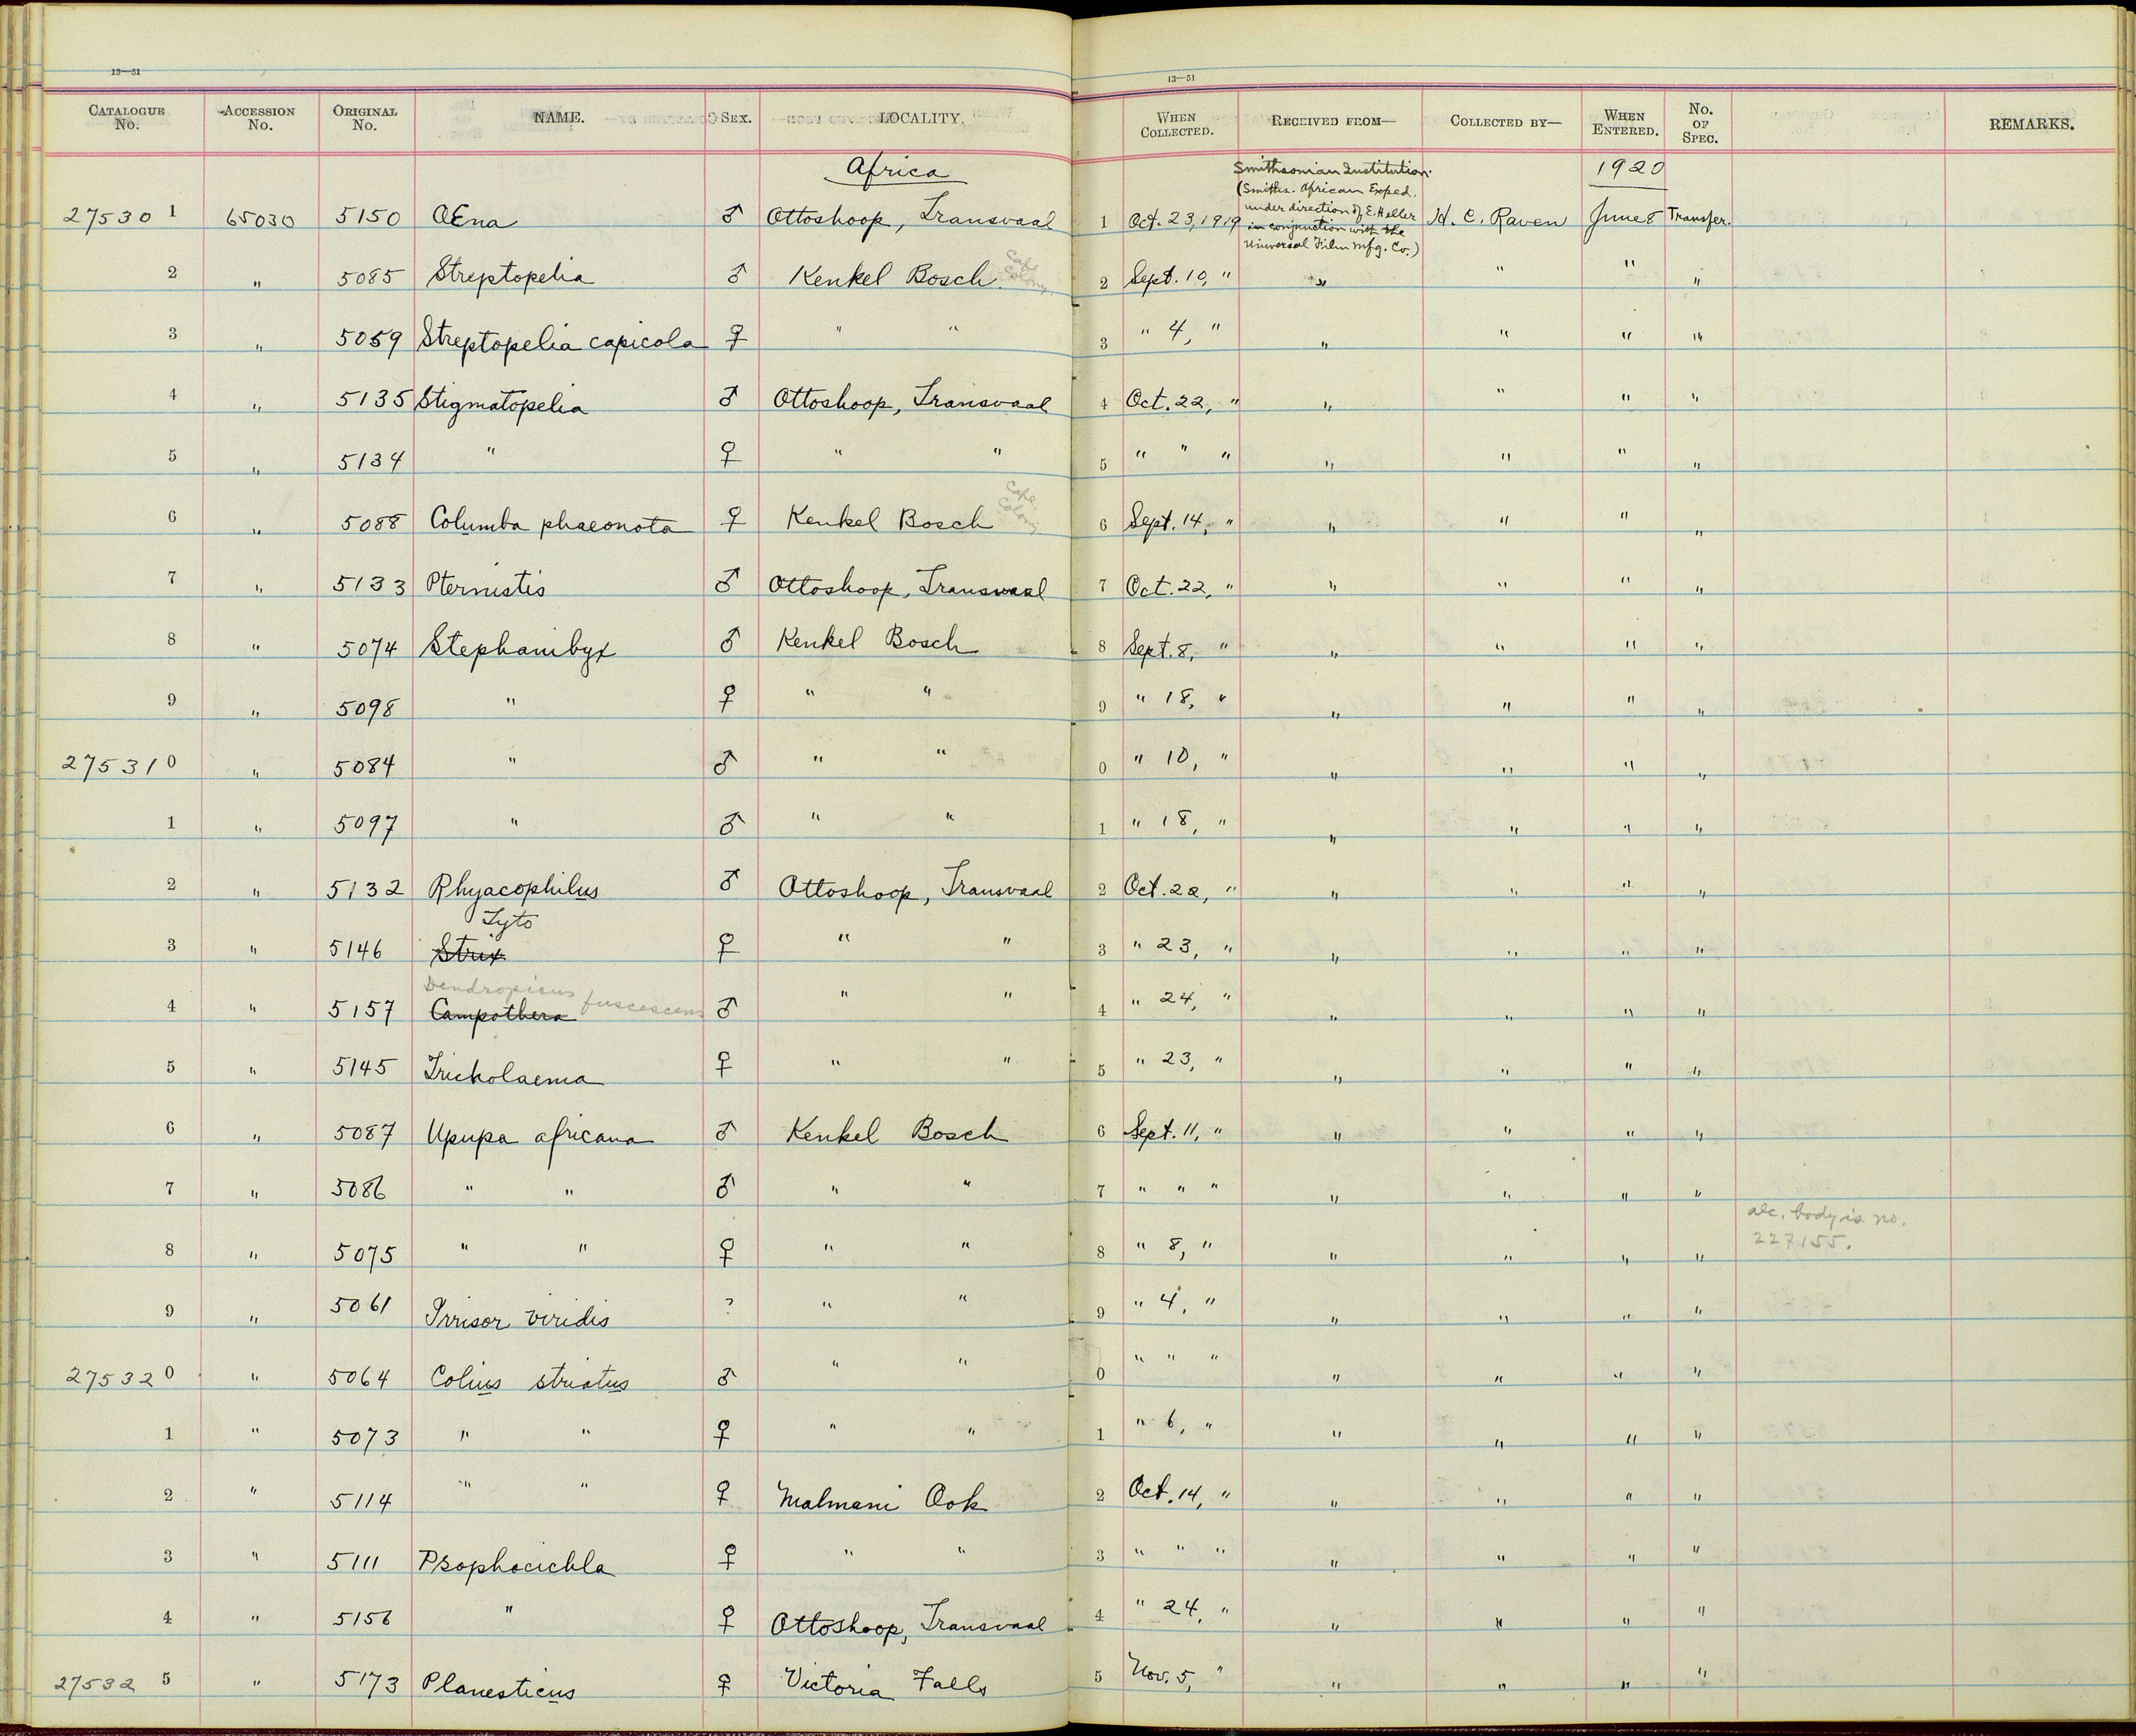 13—51
13—51
CATALOGUE No. ACCESSION No. ORIGINAL No. NAME. SEX. LOCALITY. WHEN COLLECTED. RECEIVED FROM— COLLECTED BY— WHEN ENTERED. No. OF SPEC. REMARKS.
Africa Smithsonian Institution 1920
(Smiths. African Exped.
under direction of E. Heller
27530 1 65030 5150 OEna ♂ Ottoshoop, Transvaal 1 Oct. 23, 1919 in conjunction with the H. C. Raven June 8 Transfer.
Universal Film Mfg. Co.)
2 " 5085 Streptopelia ♂ Kenkel Bosch Cape Colony 2 Sept. 10, " " " " "
3 " 5059 Streptopelia capicola ♀ " " 3 " 4, " " " " "
4 " 5135 Stigmatopelia ♂ Ottoshoop, Transvaal 4 Oct. 22, " " " " "
5 " 5134 " ♀ " " 5 " " " " " " "
6 " 5088 Columba phaeonota ♀ Kenkel Bosch Cape Colony 6 Sept. 14, " " " " "
7 " 5133 Pternistis ♂ Ottoshoop, Transvaal 7 Oct. 22, " " " " "
8 " 5074 Stephanibyx ♂ Kenkel Bosch 8 Sept. 8, " " " " "
9 " 5098 " ♀ " " 9 " 18, " " " " "
27531 0 " 5084 " ♂ " " 0 " 10, " " " " "
1 " 5097 " ♂ " " 1 " 18, " " " " "
2 " 5132 Rhyacophilus ♂ Ottoshoop, Transvaal 2 Oct. 22, " " " " "
Tyto
3 " 5146 Strix ♀ " " 3 " 23, " " " " "
Dendropicus fuscescens
4 " 5157 Campothera ♂ " " 4 " 24, " " " " "
5 " 5145 Tricholaema ♀ " " 5 " 23, " " " " "
6 " 5087 Upupa africana ♂ Kenkel Bosch 6 Sept. 11, " " " " "
7 " 5086 " " ♂ " " 7 " " " " " " "
alc. body is no.
8 " 5075 " " ♀ " " 8 " 8, " " " " " 227155.
9 " 5061 Irrisor viridis ? " " 9 " 4, " " " " "
27532 0 " 5064 Colius striatus ♂ " " 0 " " " " " " "
1 " 5073 " " ♀ " " 1 " 6, " " " " "
2 " 5114 " " ♀ Malmani Ook 2 Oct. 14, " " " " "
3 " 5111 Psophocichla ♀ " " 3 " " " " " " "
4 " 5156 " ♀ Ottoshoop, Transvaal 4 " 24, " " " " "
27532 5 " 5173 Planesticus ♀ Victoria Falls 5 Nov. 5, " " " " "